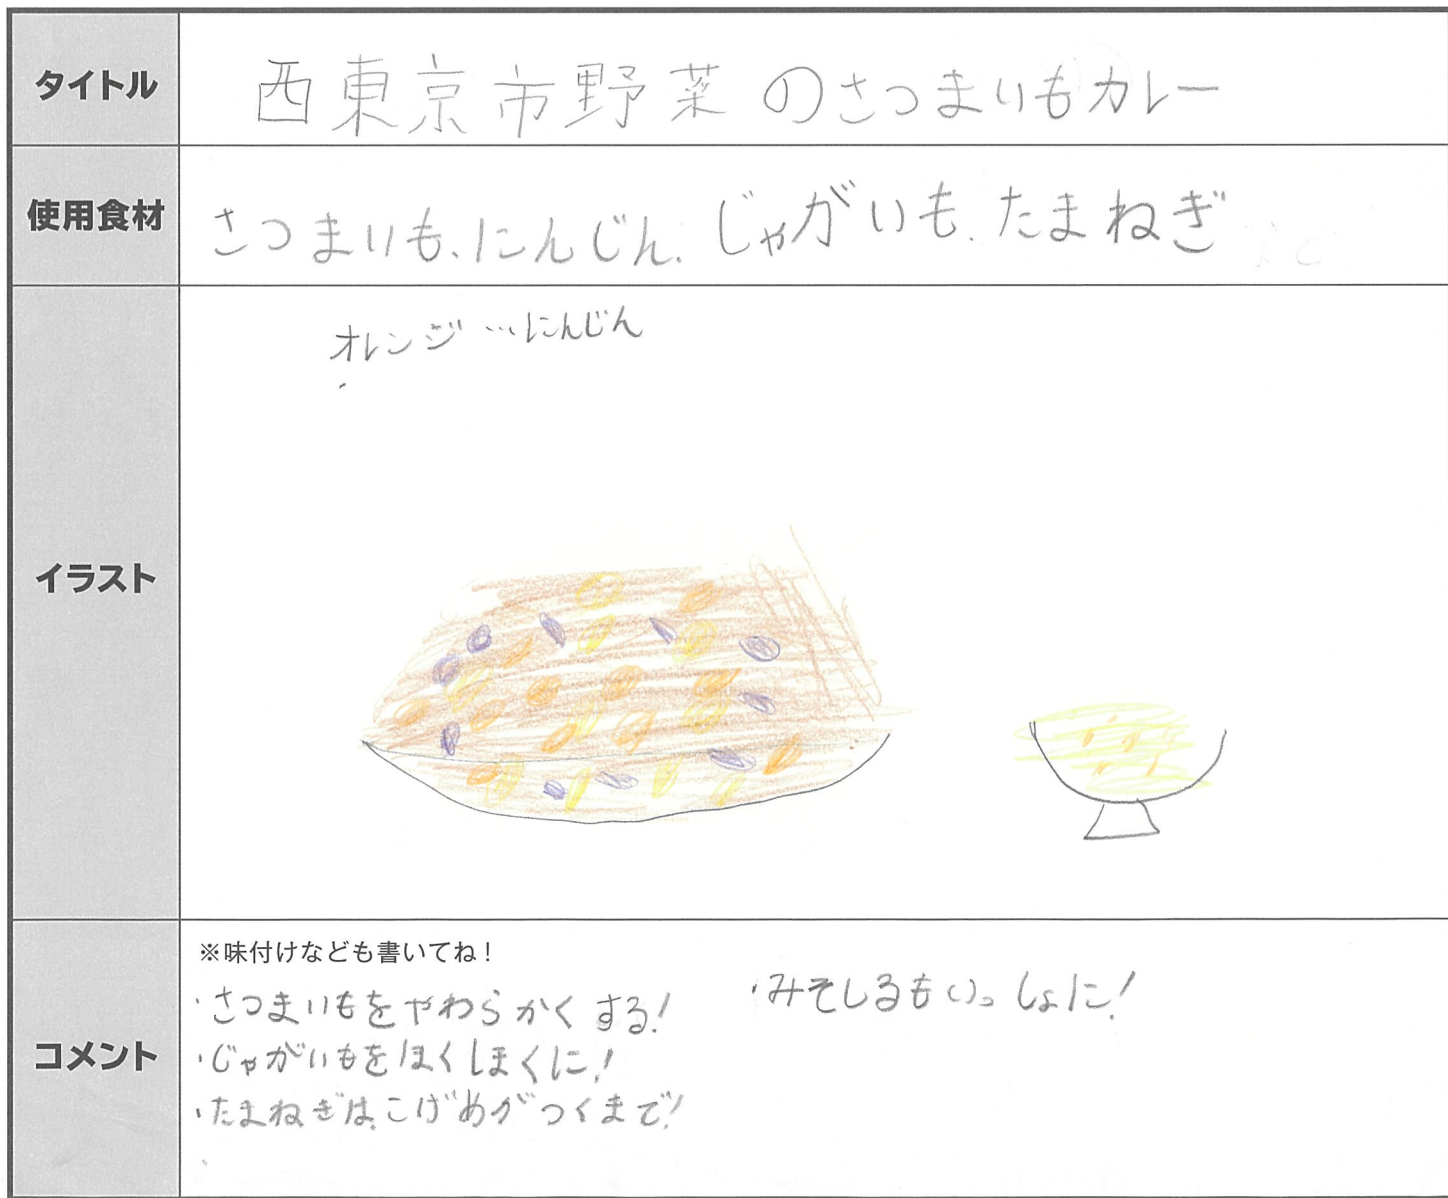 タイトル
西東京市野菜のさつまいもカレー
使用食材
さつまいも、にんじん、じゃがいも、たまねぎ
イラスト
オレンジ…にんじん
コメント
※味付けなども書いてね!
・さつまいもをやわらかくする!
・じゃがいもをほくほくに!
・たまねぎは、こげめがつくまで!
・みそしるもいっしょに!